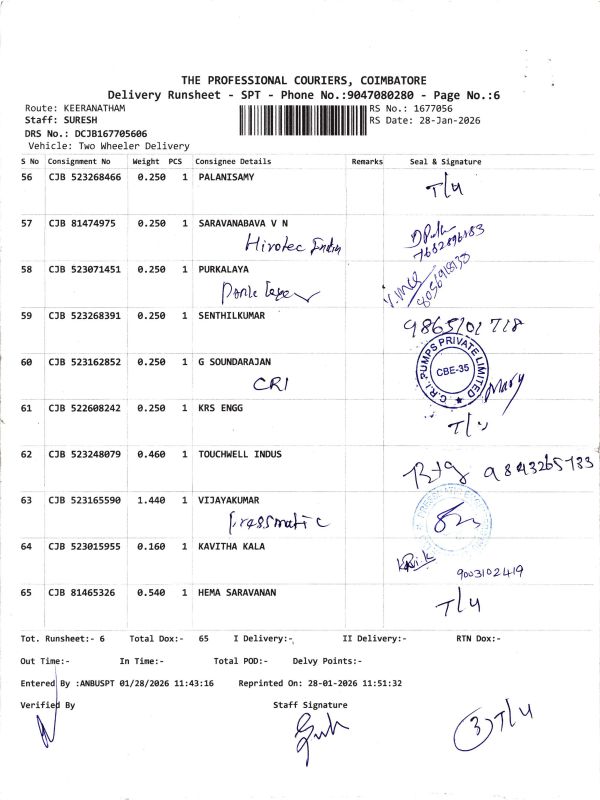 THE PROFESSIONAL COURIERS, COIMBATORE
Delivery Runsheet - SPT - Phone No.:9047080280 - Page No.:6
Route: KEERANATHAM
RS No.: 1677056
Staff: SURESH
RS Date: 28-Jan-2026
DRS No.: DCJB167705606
Vehicle: Two Wheeler Delivery
S No Consignment No Weight PCS Consignee Details Remarks Seal & Signature
56 CJB 523268466 0.250 1 PALANISAMY T/4
57 CJB 81474975 0.250 1 SARAVANABAVA V N
Hirotec India
58 CJB 523071451 0.250 1 PURKALAYA
59 CJB 523268391 0.250 1 SENTHILKUMAR
60 CJB 523162852 0.250 1 G SOUNDARAJAN
CRI
C.R.I. PUMPS PRIVATE LIMITED
CBE-35
61 CJB 522608242 0.250 1 KRS ENGG
62 CJB 523248079 0.460 1 TOUCHWELL INDUS
63 CJB 523165590 1.440 1 VIJAYAKUMAR
Pressmatic
64 CJB 523015955 0.160 1 KAVITHA KALA
9003102419
65 CJB 81465326 0.540 1 HEMA SARAVANAN T/4
Tot. Runsheet:- 6 Total Dox:- 65 I Delivery:- II Delivery:- RTN Dox:-
Out Time:- In Time:- Total POD:- Delvy Points:-
Entered By :ANBUSPT 01/28/2026 11:43:16 Reprinted On: 28-01-2026 11:51:32
Verified By Staff Signature
3 T/4